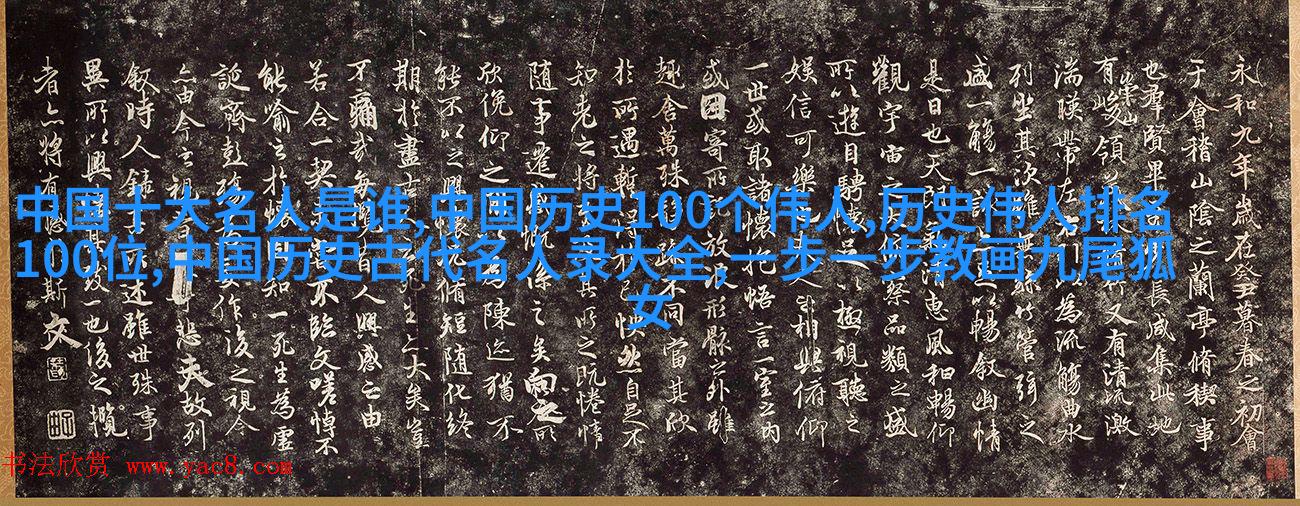 中国十大名人是谁,中国历史100个伟人,历史伟人排名
100位,中国历史古代名人录大全,一步一步教画九尾狐
女
永和九年歲在癸丑暮春之初會
于會稽山陰之蘭亭脩稧事
也羣賢畢至少長咸集此地
有崇山峻領又有清流激
湍暎帶左右以為流觴曲水
列坐其次雖無絲竹管弦之
盛一觴一詠足以暢叙幽情
是日也天朗氣清惠風和暢仰
觀宇宙之大俯察品類之盛
所以遊目騁懷足以極視聽之
娛信可樂也夫人之相與俯仰
一世或取諸懷抱悟言一室之內
或因寄所託放浪形骸之外雖
趣舍萬殊靜躁不同當其欣
於所遇蹔得於己怏然自足不
知老之將至及其所之既惓情
隨事遷感慨係之矣向之所
欣俛仰之間以為陳迹猶不
能不以之興懷況脩短隨化終
期於盡古人云死生亦大矣豈
不痛哉每攬昔人興感之由
若合一契未嘗不臨文嗟悼不
能喻之於懷固知一死生為虛
誕齊彭殤為妄作後之視今
亦由今之視昔悲夫故列
叙時人錄其所述雖世殊事
異所以興懷其致一也後之攬
者亦將有感於斯文
书法欣赏 www.yac8.com